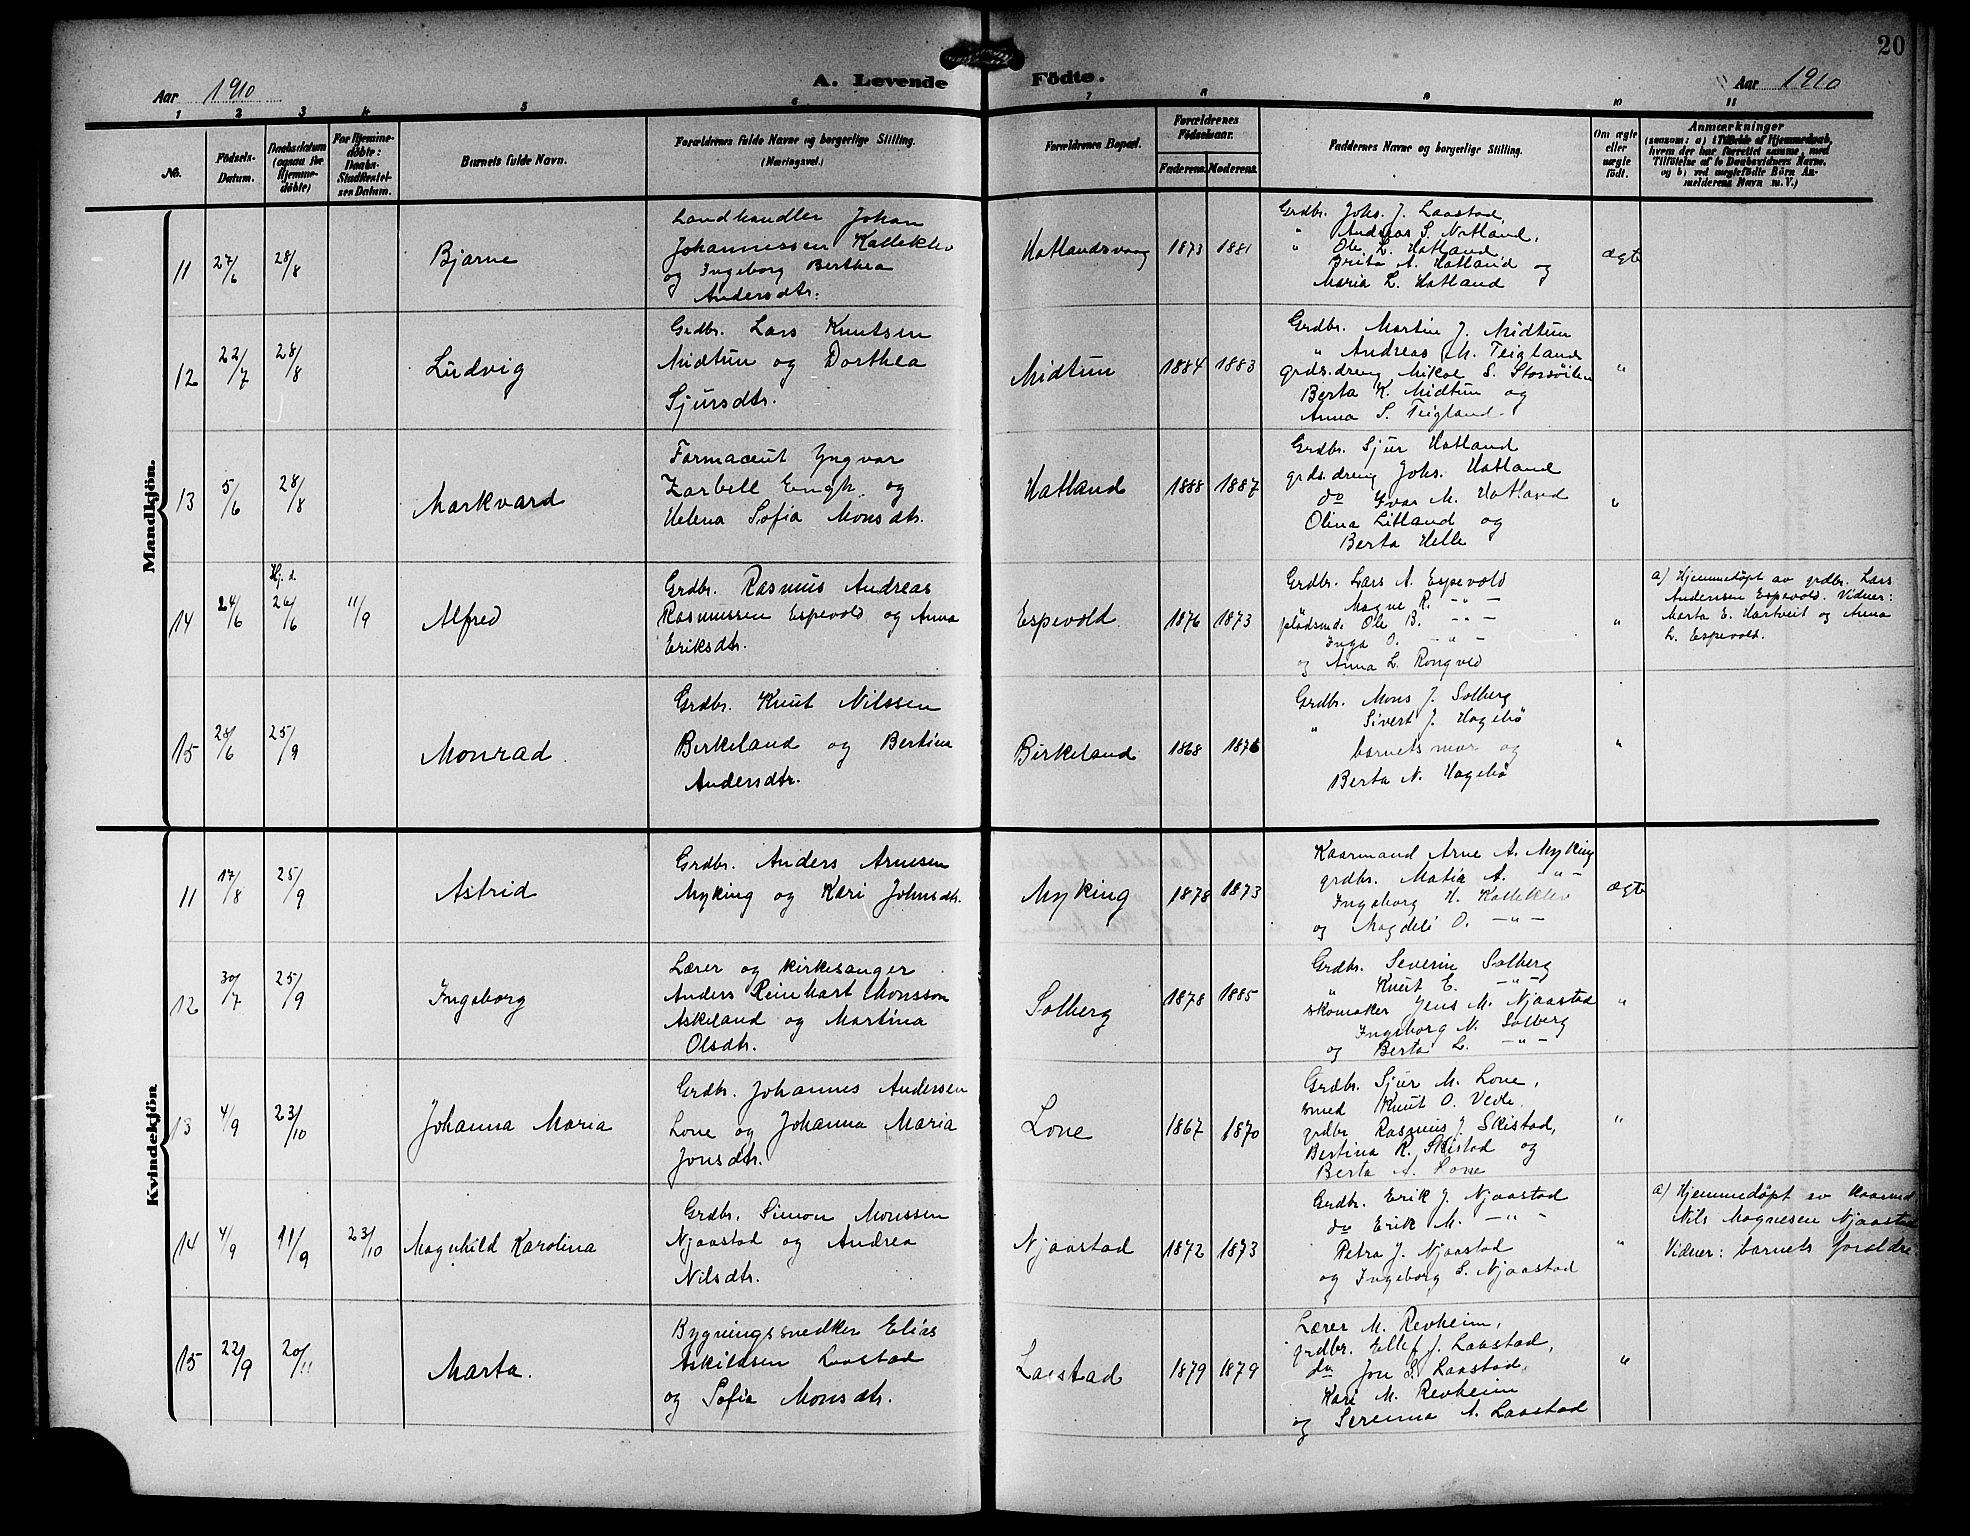 20
Aar 1910
A. Levende
Födte.
Aar 1910
1 2 3 4 5 6 7 8 9 10 11
No.
Födsels-
Datum.
Daabsdatum
(ogsaa for
Hjemme-
döbte)
For Hjemme-
döbte:
Daabs-
Stadfæstel-
sen Datum.
Barnets fulde Navn.
Forældrenes fulde Navne og borgerlige Stilling.
(Næringsvei.)
Forældrenes Bopæl.
Forældrenes
Födselsaar.
Faderens. Moderens.
Faddernes Navne og borgerlige Stilling.
Om ægte
eller
uægte
födt.
Anmærkninger
(saasom: a) i Tilfælde af Hjemmedaab,
hvem der har forrettet samme, med
Tilföielse af to Daabsvidners Navne,
og b) ved uægtefödte Börn An-
melderens Navn m. V.)
Mandkjön.
11
27/6
28/8
Bjarne
Landhandler Johan
Johannessen Kalleklev
og Ingeborg Berthea
Andersdtr.
Hatlandsvaag
1873
1881
Grdbr. Johs. J. Laastad,
" Andreas S. Natland,
" Ole L. Hatland
Brita A. Hatland og
Maria L. Hatland
ægte
12
22/7
28/8
Ludvig
Grdbr. Lars Knutsen
Midtun og Dorthea
Sjursdtr.
Midtun
1884
1883
Grdbr. Martin J. Midtun
" Andreas M. Teigland
grds.dreng Mikal S. Storsöilen
Berta K. Midtun og
Anna S. Teigland.
"
13
5/6
28/8
Markvard
Farmaceut Yngvar
Zarbell Engh. og
Helena Sofia Monsdtr.
Hatland
1888
1887
Grdbr. Sjur Hatland
grds.dreng Johs. Hatland
do Ivar M. Hatland
Olina Litland og
Berta Helle
"
14
24/6
Hj. d.
26/6
11/9
Alfred
Grdbr. Rasmus Andreas
Rasmussen Espevold og Anna
Eriksdtr.
Espevold
1876
1873
Grdbr. Lars A. Espevold
Magne R. -"-
Ole B. -"-
Inga O. -"-
og Anna L. Rongved
"
a) Hjemmedöpt av grdbr. Lars
Andersen Espevold. Vidner:
Marta E. Hartveit og Anna
L. Espevold.
15
28/6
25/9
Monrad
Grdbr. Knut Nilssen
Birkeland og Bertina
Andersdtr.
Birkeland
1868
1876
Grdbr. Mons J. Solberg
" Sivert J. Hagebö
barnets mor og
Berta N. Hagebö
"
Kvindekjön
11
17/8
25/9
Astrid
Grdbr. Anders Arnesen
Myking og Kari Johnsdtr.
Myking
1878
1873
Kaarmand Arne A. Myking
grdbr. Matia A. -"-
Ingeborg H. Kalleklev
og Magdeli O. -"-
ægte
12
30/7
25/9
Ingeborg
Lærer og kirkesanger
Anders Reinhart Monsson
Askeland og Martina
Olsdtr.
Solberg
1878
1885
Grdbr. Severin Solberg
" Knut E. -"-
skomaker Jens M. Njaastad
Ingeborg N. Solberg
og Berta L. -"-
"
13
4/9
23/10
Johanna Maria
Grdbr. Johannes Andersen
Lone og Johanna Maria
Jonsdtr.
Lone
1867
1870
Grdbr. Sjur M. Lone,
smed Knut O. Vede.
grdbr Rasmus J. Skistad,
Bertina R. Skistad og
Berta A. Lone
"
14
4/9
11/9
23/10
Magnhild Karolina
Grdbr. Simon Monssen
Njaastad og Andrea
Nilsdtr.
Njaastad
1872
1873
Grdbr. Erik J. Njaastad
do Erik M. -"-
Petra J. Njaastad
og Ingeborg S. Njaastad
"
a) Hjemmedöpt av Kaarmd.
Nils Magnesen Njaastad
Vidner: barnets foraldre
15
22/9
20/11
Marta.
Bygningssnedker Elias
Askildsen Laastad
og Sofia Monsdtr.
Laastad
1879
1879
Lærer M. Revheim,
grdbr. Ellef J. Laastad,
do Jon S. Laastad,
Kari M. Revheim
og Serenna A. Laastad
"